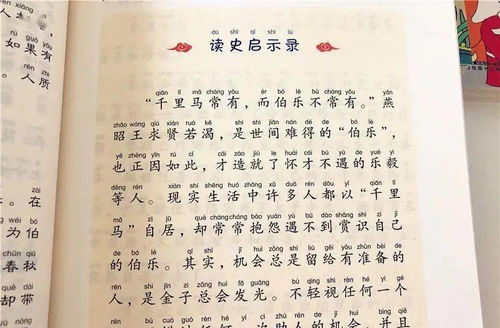 dú shǐ qǐ shì lù
读史启示录
qiān lǐ mǎ cháng yǒu ér bó lè bù cháng yǒu yān
“千里马常有,而伯乐不常有。”燕
zhāo wáng qiú xián ruò kě shì shì jiān nán dé de bó lè
昭王求贤若渴,是世间难得的“伯乐”,
yě zhèng yīn rú cǐ cái zào jiù le huái cái bú yù de yuè yì
也正因如此,才造就了怀才不遇的乐毅
děng rén xiàn shí shēng huó zhōng xǔ duō rén dōu yǐ qiān lǐ
等人。现实生活中许多人都以“千里
mǎ zì jū què cháng cháng bào yuàn yù bú dào shǎng shí zì jǐ
马”自居,却常常抱怨遇不到赏识自己
de bó lè qí shí jī huì zǒng shì liú gěi yǒu zhǔn bèi de
的伯乐。其实,机会总是留给有准备的
rén shì jīn zi zǒng huì fā guāng bù qīng shì rèn hé yí gè
人,是金子总会发光。不轻视任何一个
如果有
rén zhì
人质
zài
在
wéi bó
为伯
chūn qiū
春秋
què dài
却带